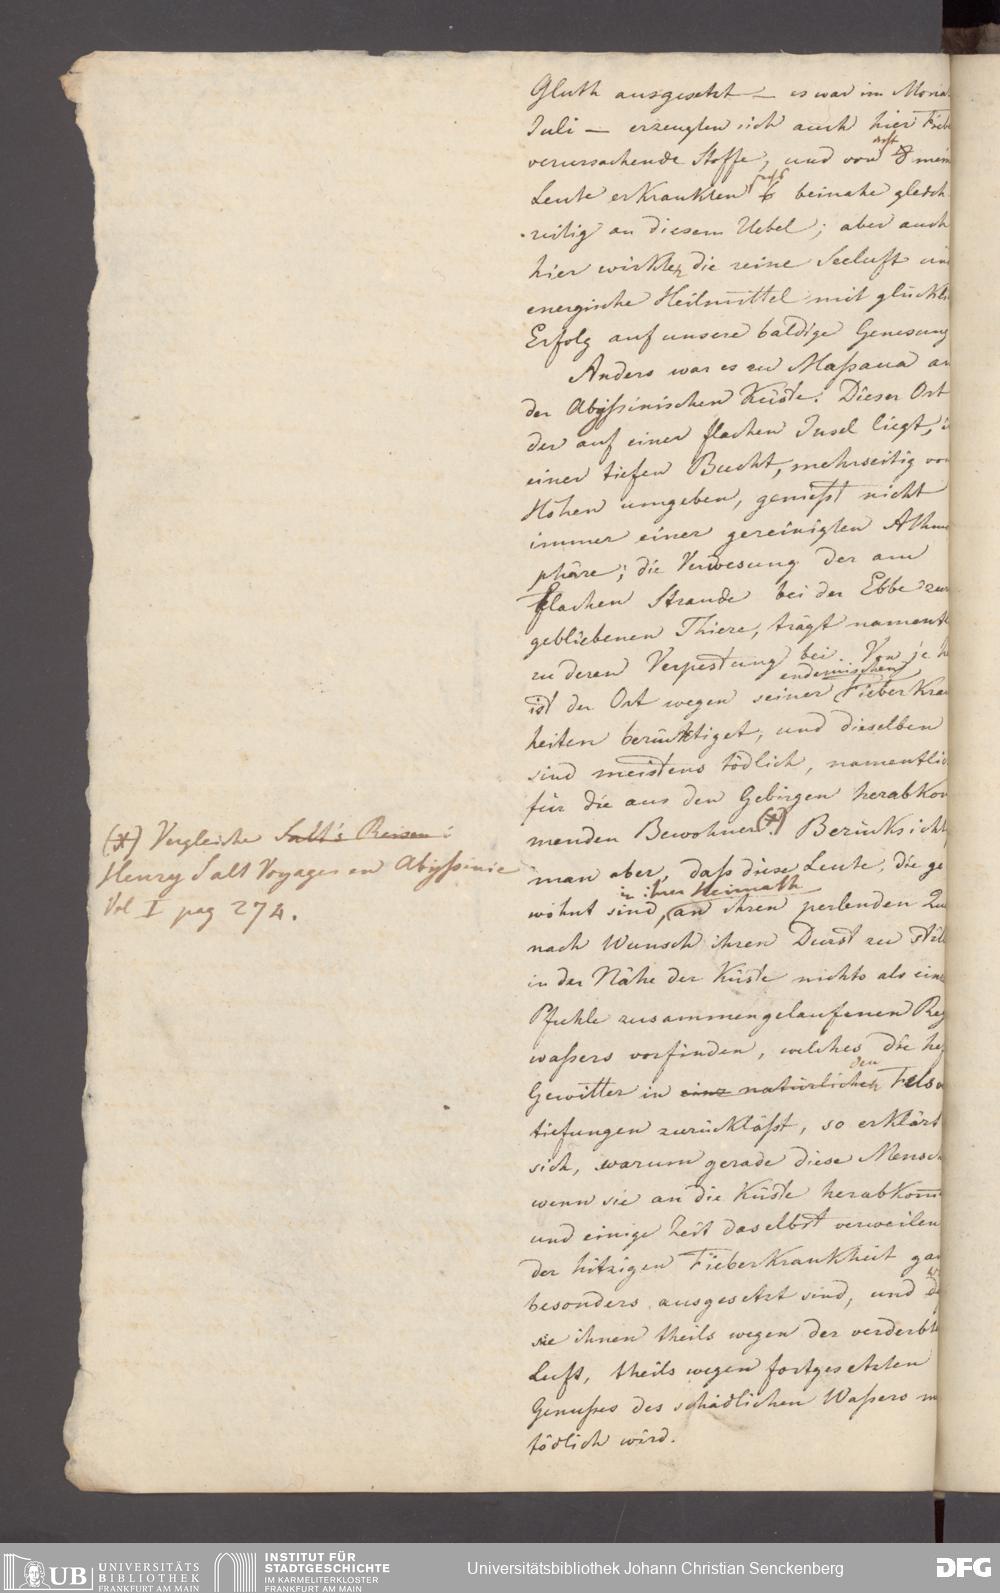 Gluth ausgesetzt — es war im Mona
Juli — erzeugten sich auch hier Fieb
verursachende Stoffe, und von acht 8 mein
Leute erkrankten sechs 6 beinahe gleich
zeitig an diesem Uebel; aber auch
hier wirkte die reine Seeluft un
energische Heilmittel mit glückli
Erfolg auf unsere baldige Genesung
Anders war es zu Maßaua an
der Abyßinischen Küste. Dieser Ort
der auf einer flachen Insel liegt, i
einer tiefen Bucht, mehrseitig von
Höhen umgeben, genießt nicht
immer einer gereinigten Athmo
phäre; die Verwesung der am
flachen Strande bei der Ebbe zur
gebliebenen Thiere, trägt namentl
zu deren Verpestung bei. Von je h
endemischen
ist der Ort wegen seiner Fieber Kran
heiten berüchtiget, und dieselben
sind meistens tödlich, namentlich
für die aus den Gebirgen herabkom
menden Bewohner (*). Berücksicht
man aber, daß diese Leute, die ge
in ihrer Heimath
wöhnt sind, an ihren perlenden Qu
nach Wunsch ihren Durst zu still
in der Nähe der Küste nichts als eini
Pfuhle zusammengelaufenen Reg
waßers vorfinden, welches die hef
den
Gewitter in eine natürlichen Felsv
tiefungen zurückläßt, so erklärt
sich, warum gerade diese Mensch
wenn sie an die Küste herabkomm
und einige Zeit daselbst verweilen
der hitzigen Fieberkrankheit gan
besonders ausgesetzt sind, und
sie ihnen theils wegen der verderbte
Luft, theils wegen fortgesetzten
Genußes des schädlichen Waßers m
tödlich wird.
(*) Vergleiche Salt's Reisen:
Henry Salt Voyages en Abyßinie
Vol I pag 274.
UB UNIVERSITÄTS
BIBLIOTHEK
FRANKFURT AM MAIN
INSTITUT FÜR
STADTGESCHICHTE
IM KARMELITERKLOSTER
FRANKFURT AM MAIN
Universitätsbibliothek Johann Christian Senckenberg
DFG